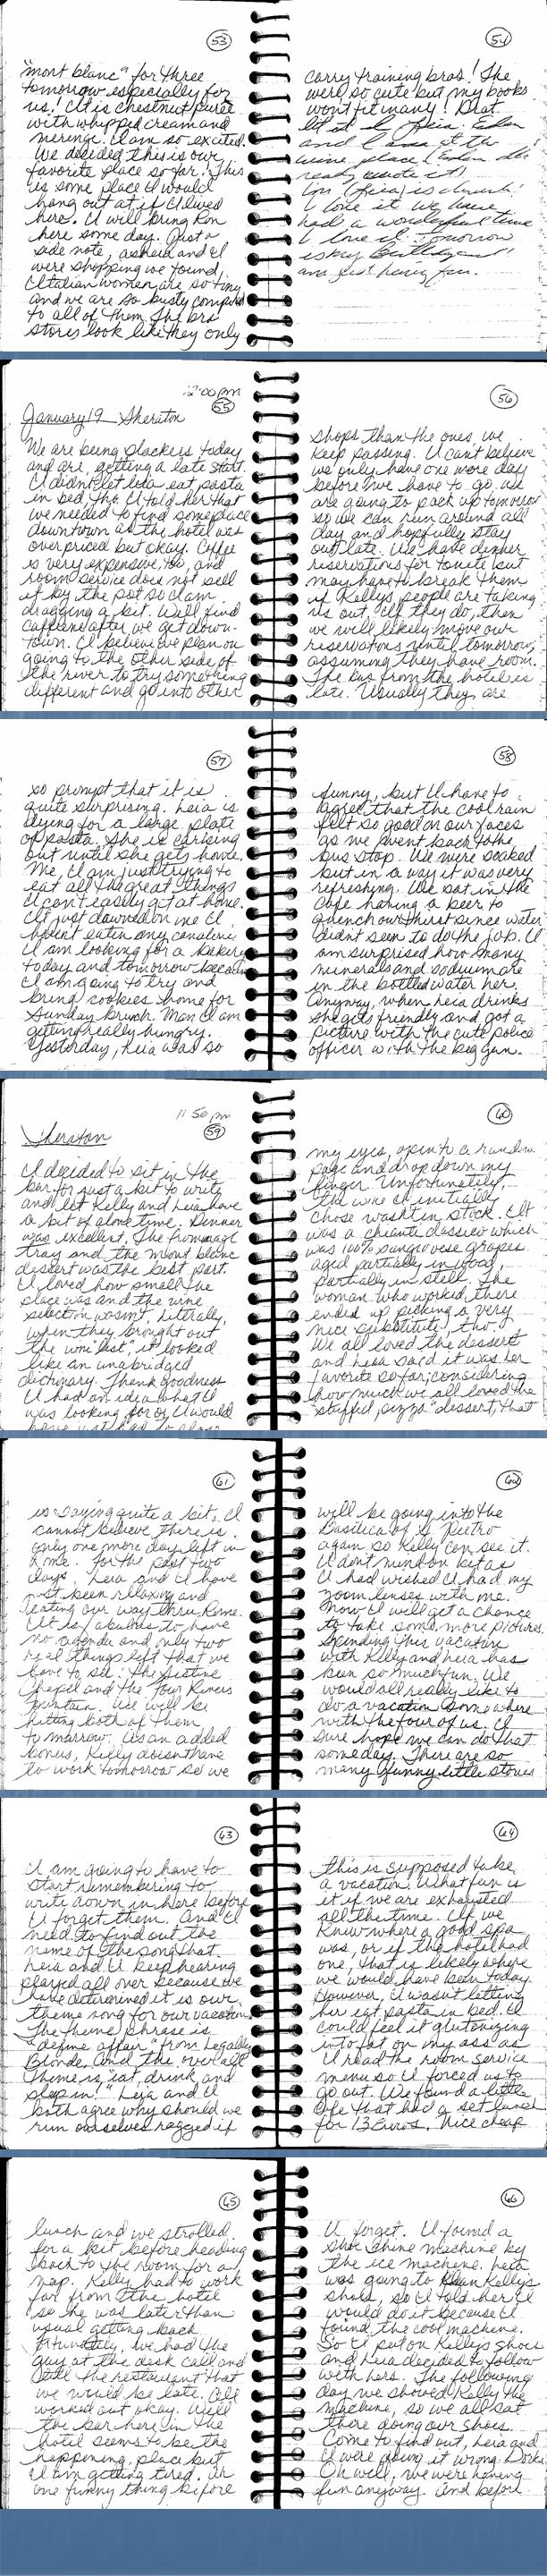 53
"mont blanc" for three
tomorrow especially for
us! It is chestnut puree
with whipped cream and
meringe. I am so excited.
We decided this is our
favorite place so far! This
is some place I would
hang out at if I lived
here. I will bring Ron
here some day. Just a
side note, as Leia and I
were shopping we found
Italian women are so tiny
and we are so busty compared
to all of them. The bra
stores look like they only
54
carry training bras! She
were so cute but my books
won't fit many! Drat.
and I are at the
wine place!
ready
I love it we have
had a wonderful time
I love it! Tomorrow
is my Birthday and I
am just having fun.
12:00pm
55
January 19 Sheraton
We are being slackers today
and are getting a late start.
I didn't let Leia eat pasta
in bed tho. I told her that
we needed to find someplace
downtown as the hotel was
overpriced but okay. Coffee
is very expensive, too, and
room service does not sell
it by the pot so I am
dragging a bit. We'll find
caffeine after we get down-
town. I believe we plan on
going to the other side of
the river to try something
different and go into other
56
shops than the ones we
keep passing. I can't believe
we only have one more day
before we have to go. We
are going to pack up tomorrow
so we can run around all
day and hopefully stay
out late. We have dinner
reservations for tonite but
may have to break them
if Kellys people are taking
us out. If they do, then
we will likely move our
reservations until tomorrow,
assuming they have room.
The bus from the hotel is
late. Usually they are
57
so prompt that it is
quite surprising. Leia is
dying for a large plate
of pasta. She is carbing
out until she gets home.
Me, I am just trying to
eat all the great things
I can't easily get at home.
It just dawned on me I
haven't eaten any canolini.
I am looking for a bakery
today and tomorrow because
I am going to try and
bring cookies home for
Sunday brunch. Man I am
getting really hungry.
Yesterday, Leia was so
58
funny, but I have to
agree that the cool rain
felt so good on our faces
as we went back to the
bus stop. We were soaked
but in a way it was very
refreshing. We sat in the
cafe having a beer to
quench our thirst since water
didn't seem to do the job. I
am surprised how many
minerals and sodium are
in the bottled water her.
Anyway, when Leia drinks
she gets friendly and got a
picture with the cute police
officer with the big gun.
11:50 pm
59
Sheraton
I decided to sit in the
bar for just a bit to write
and let Kelly and Leia have
a bit of alone time. Dinner
was excellent. The frommage
tray and the mont blanc
dessert was the best part.
I loved how small the
place was and the wine
selection wasn't. Litterally,
when they brought out
the "wine list", it looked
like an unabridged
dictionary. Thank goodness
I had an idea what I
was looking for or I would
have just had to close
60
my eyes, open to a random
page and drop down my
finger. Unfortunately,
the wine I initially
chose washt in stock. It
was a chianti classico which
was 100% sangiovese grapes
aged partially in wood,
partially in stell. The
woman who worked there
ended up picking a very
nice substitute, tho.
We all loved the dessert
and Leia said it was her
favorite so far; considering
how much we all loved the
"stuffed pizza" dessert, that
61
is saying quite a bit. I
cannot believe there is
only one more day left in
Rome. For the past two
days, Leia and I have
just been relaxing and
eating our way thru Rome.
It is fabulous to have
no agenda and only two
real things left that we
have to see: the Sistine
Chapel and the Four Rivers
Fountain. We will be
hitting both of them
tomorrow. As an added
bonus, Kelly doesn't have
to work tomorrow so we
62
will be going into the
Basilica of S. Pietro
again so Kelly can see it.
I don't mind on bit as
I had wished I had my
zoom lenses with me.
Now I will get a chance
to take some more pictures.
Spending this vacation
with Kelly and Leia has
been so much fun. We
would all really like to
do a vacation somewhere
with the four of us. I
sure hope we can do that
someday. There are so
many funny little stories
63
I am going to have to
start remembering to
write down in here before
I forget them. And I
need to find out the
name of the song that
Leia and I keep hearing
played all over because we
have determined it is our
theme song for our vacation.
The theme phrase is
"define affair" from Legally
Blonde. And the overall
theme is, "eat, drink, and
sleep in!" Leia and I
both agree why should we
run ourselves ragged if
64
this is supposed to be
a vacation. What fun is
it if we are exhausted
all the time. If we
knew where a good spa
was, or if the hotel had
one, that is likely where
we would have been today.
However, I wasn't letting
her eat pasta in bed. I
could feel it glutonizing
into fat on my ass as
I read the room service
menu so I forced us to
go out. We found a little
cafe that had a set lunch
for 13 Euros. Nice cheap
65
lunch and we strolled
for a bit before heading
back to the room for a
nap. Kelly had to work
far from the hotel
so he was later than
usual getting back.
Fortunately, we had the
guy at the desk call and
tell the restaurant that
we would be late. All
worked out okay. Well
the bar here in the
hotel seems to be the
happening place but
I am getting tired. Oh
one funny thing before
66
I forget. I found a
shoe shine machine by
the ice machine. Leia
was going to clean Kellys
shoes, so I told her I
would do it because I
found the cool machine.
So I put on Kellys shoes
and Leia decided to follow
with hers. The following
day we showed Kelly the
machine, so we all sat
there doing our shoes.
Come to find out, Leia and
I were doing it wrong. Dorks.
Oh well, we were having
fun anyway. And before